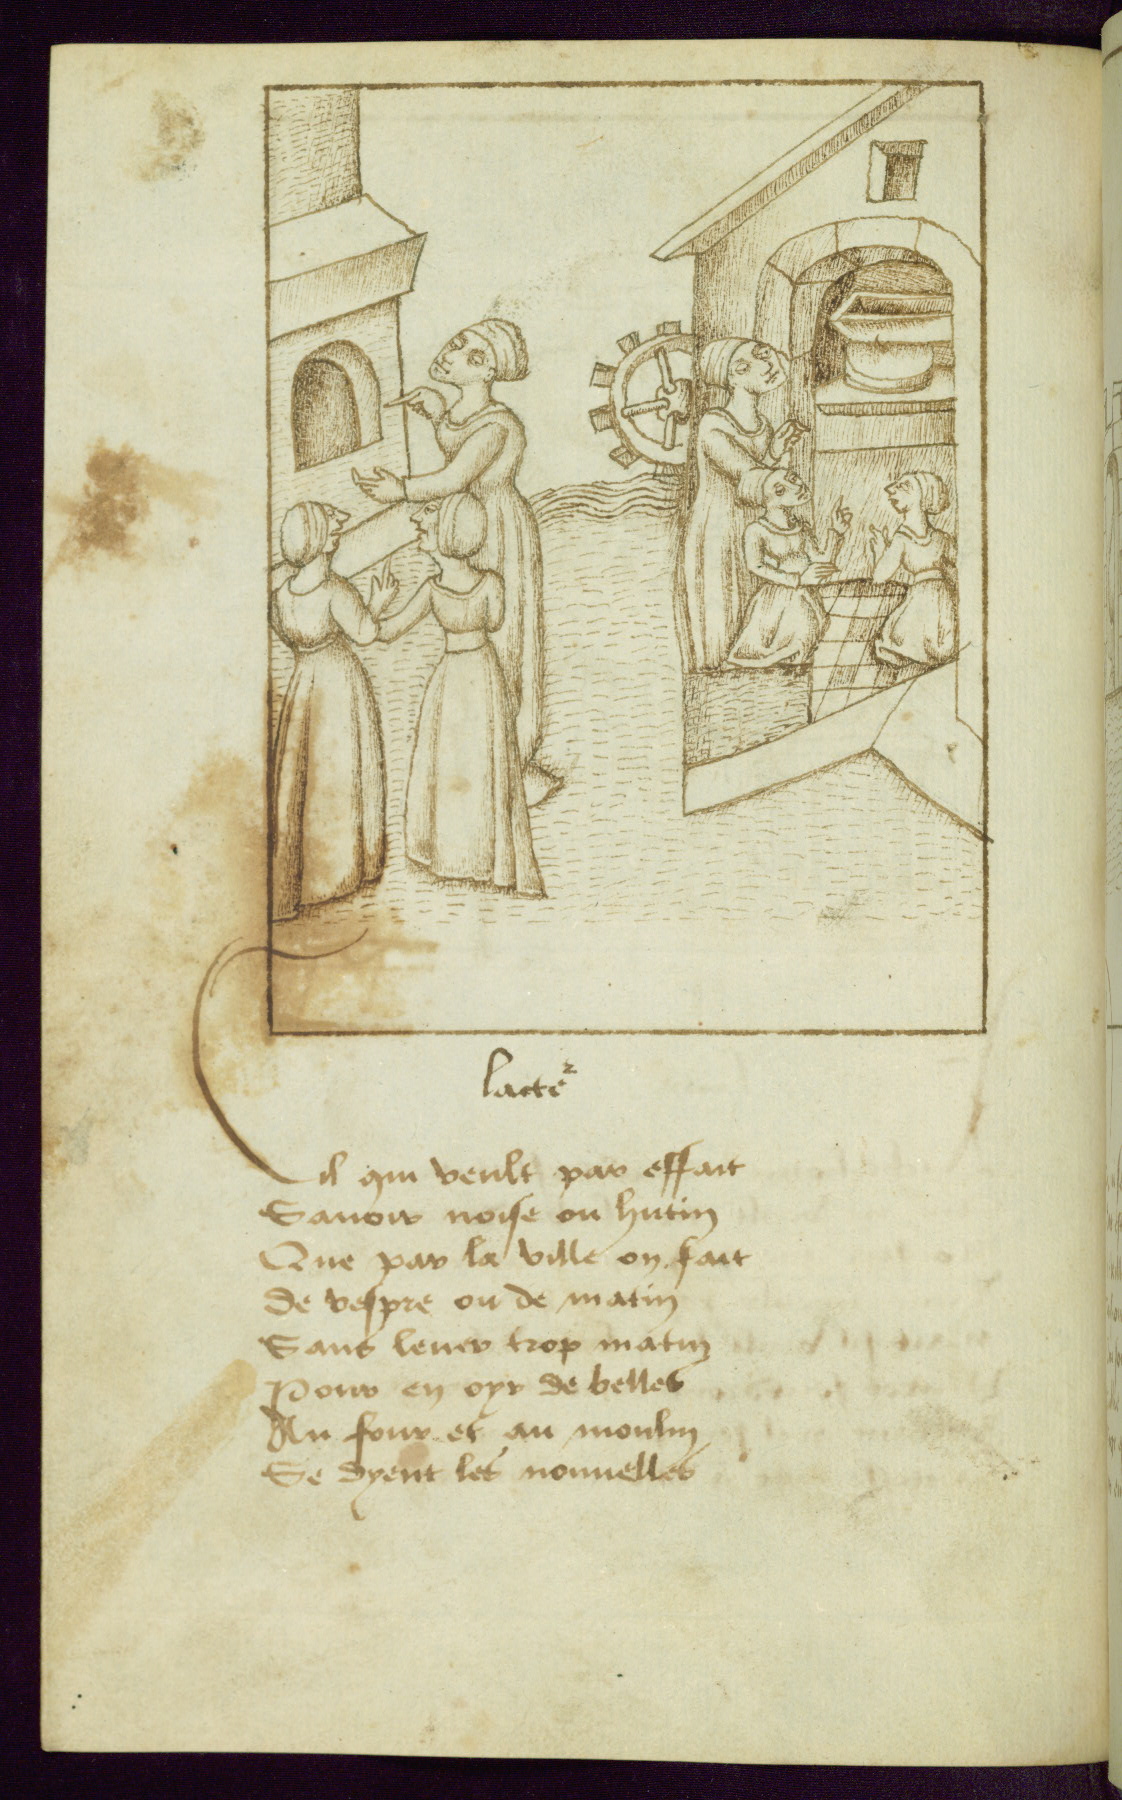 lacteᷣ
Cil qui veult par effait
Sauoir noise ou hutin
Que par la ville on fait
De vespre ou de matin
Sans leuer trop matin
Pour en oyr de belles
Au four et au moulin
Se dyent les nouuelles